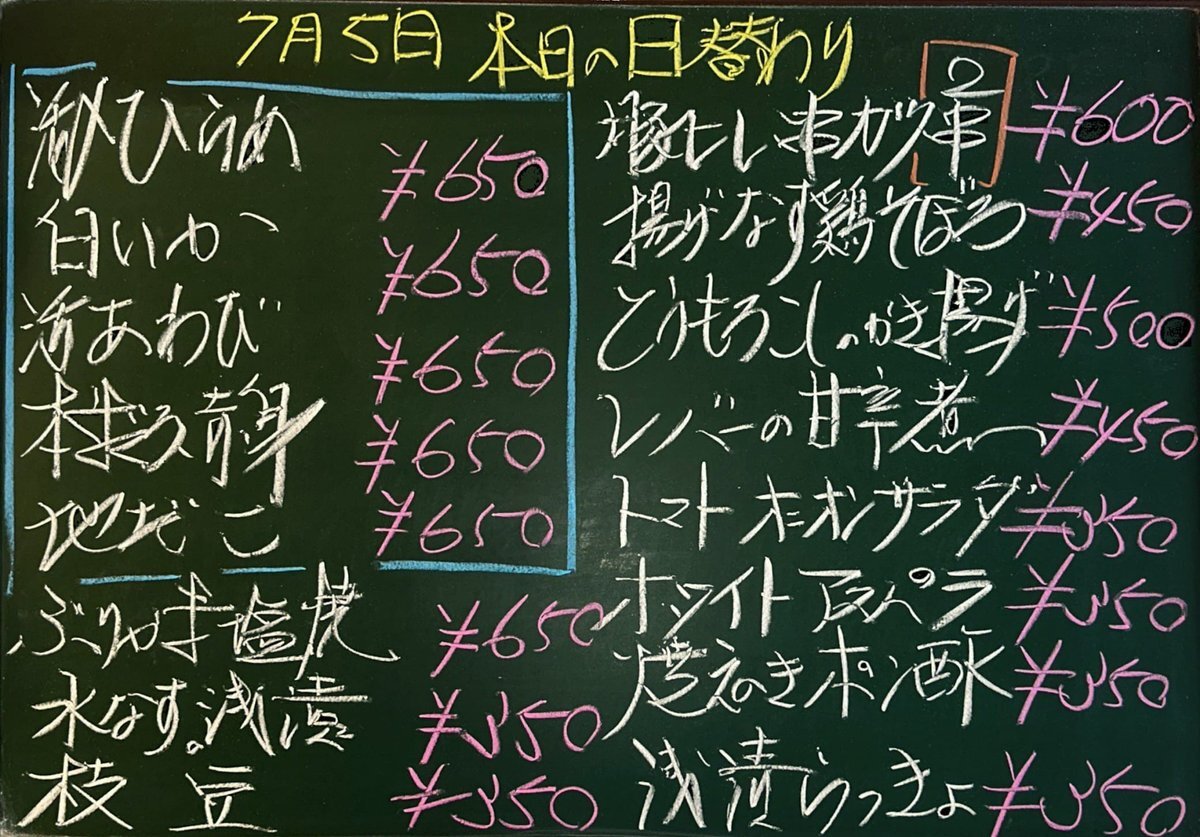 7月5日 本日の日替わり
活ひらめ ¥650
白いか ¥650
活あわび ¥650
本まぐろ赤身 ¥650
地だこ ¥650
ぶりかま塩焼 ¥650
水なす浅漬 ¥350
枝豆 ¥350
豚ヒレ串カツ 2串 ¥600
揚げなす鶏そぼろ ¥450
とうもろこしのかき揚げ ¥500
レバーの甘辛煮 ¥450
トマトオニオンサラダ ¥350
ホワイトアスパラ ¥350
焼えのきポン酢 ¥350
浅漬らっきょ ¥350